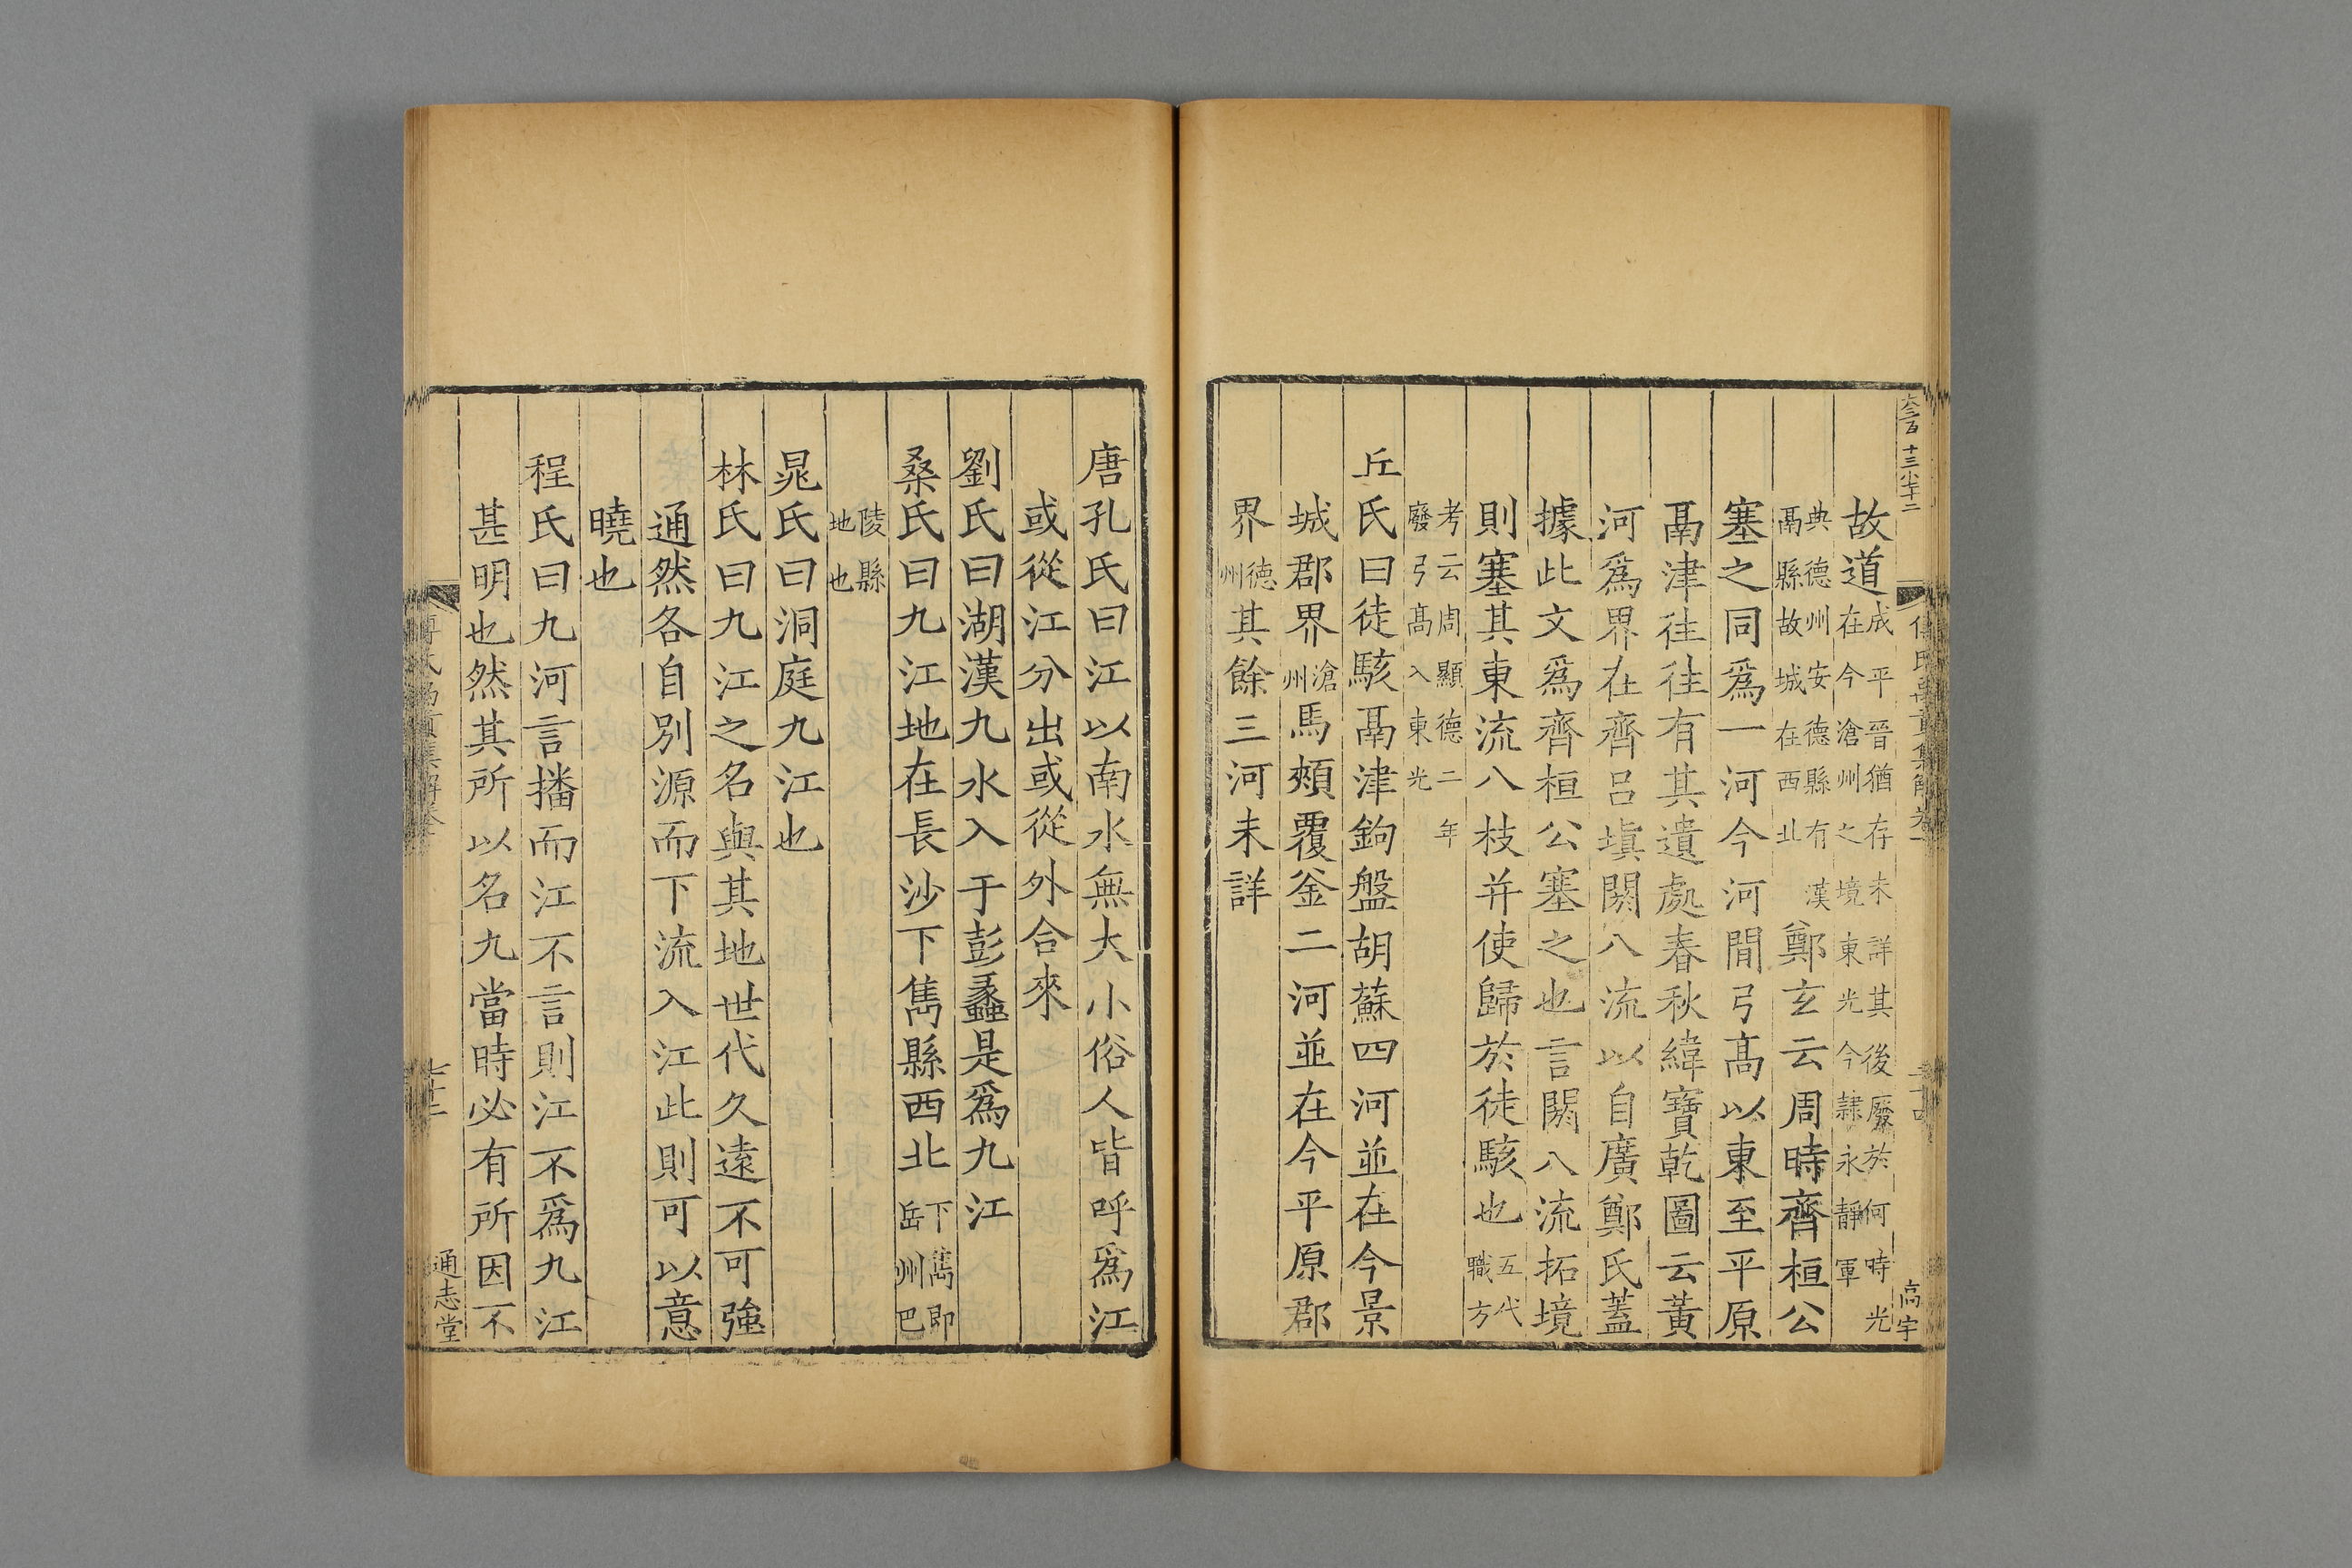 大三百十三小七十二
故道成平晉猶存未詳其後廢於何時光在今滄州之境東光今隷永靜軍
典德州安德縣有漢鬲縣故城在西北鄭玄云周時齊桓公
塞之同爲一河今河間弓髙以東至平原
鬲津往往有其遺處春秋緯寶乾圖云黃
河爲界在齊呂塡閼八流以自廣鄭氏蓋
據此文爲齊桓公塞之也言閼八流拓境
則塞其東流八枝并使歸於徒駭也五代職方
考云周顯德二年廢弓髙入東光
丘氏曰徒駭鬲津鉤盤胡蘇四河並在今景
城郡界滄州馬頰覆釜二河並在今平原郡
界德州其餘三河未詳
唐孔氏曰江以南水無大小俗人皆呼爲江
或從江分出或從外合來
劉氏曰湖漢九水入于彭蠡是爲九江
桑氏曰九江地在長沙下雋縣西北下雋即岳州巴
陵縣地也
晁氏曰洞庭九江也
林氏曰九江之名與其地世代久遠不可強
通然各自別源而下流入江此則可以意
曉也
程氏曰九河言播而江不言則江不爲九江
甚明也然其所以名九當時必有所因不
通志堂